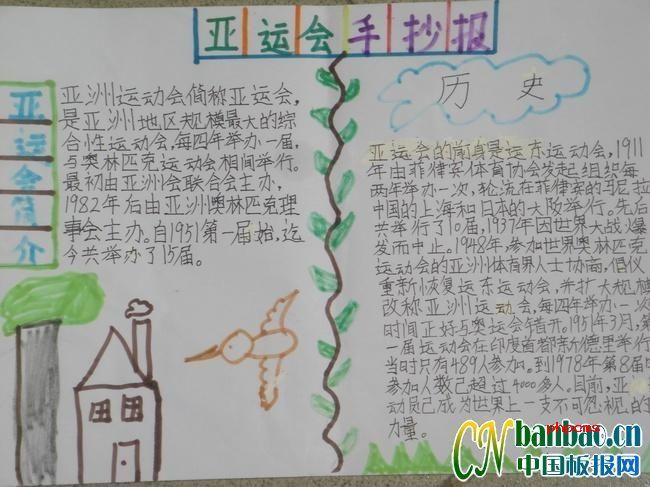 亚运会手抄报
亚运会简介
亚洲运动会简称亚运会,
是亚洲地区规模最大的综
合性运动会,每四年举办一届,
与奥林匹克运动会相间举行。
最初由亚洲会联合会主办,
1982年后由亚洲奥林匹克理
事会主办。自1951第一届始,迄
今共举办了15届。
历史
亚运会的前身是远东运动会,1911
年由菲律宾体育协会发起组织每
两年举办一次,轮流在菲律宾的马尼拉
中国的上海和日本的大阪举行。先后
共举行了10届,1937年因世界大战爆
发而中止。1948年,参加世界奥林匹克
运动会的亚洲体育界人士协商,倡仪
重新恢复远东运动会,并扩大规模
改称亚洲运动会,每四年举办一次
时间正好与奥运会错开。1951年3月,第
一届运动会在印度首都新德里举行
当时只有489人参加。到1978年第8届时
参加人数已超过4000多人。目前,亚
动员已成为世界上一支不可忽视的
力量。
phpcms
CN banbao.cn
中国板报网